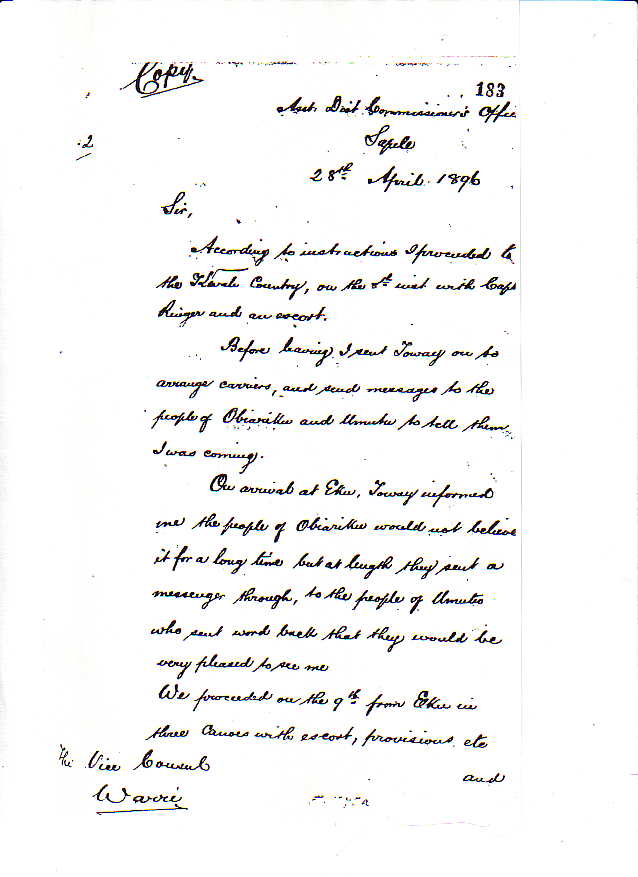 Copy.
183
Asst. Dist Commissioner's Offic
2
Sapele
28th April 1896
Sir,
According to instructions I proceeded to
the Country, on the 8th inst with Capt
Ringer and an escort.
Before leaving I sent Toway on to
arrange carriers, and send messages to the
people of Obiariku and Umutu to tell them
I was coming.
On arrival at Eku, Toway informed
me the people of Obiariku would not believe
it for a long time but at length they sent a
messenger through, to the people of Umuto
who sent word back that they would be
very pleased to see me
We proceeded on the 9th from Eku in
three Canoes with escort, provisions etc
The Vice Consul
and
Warri